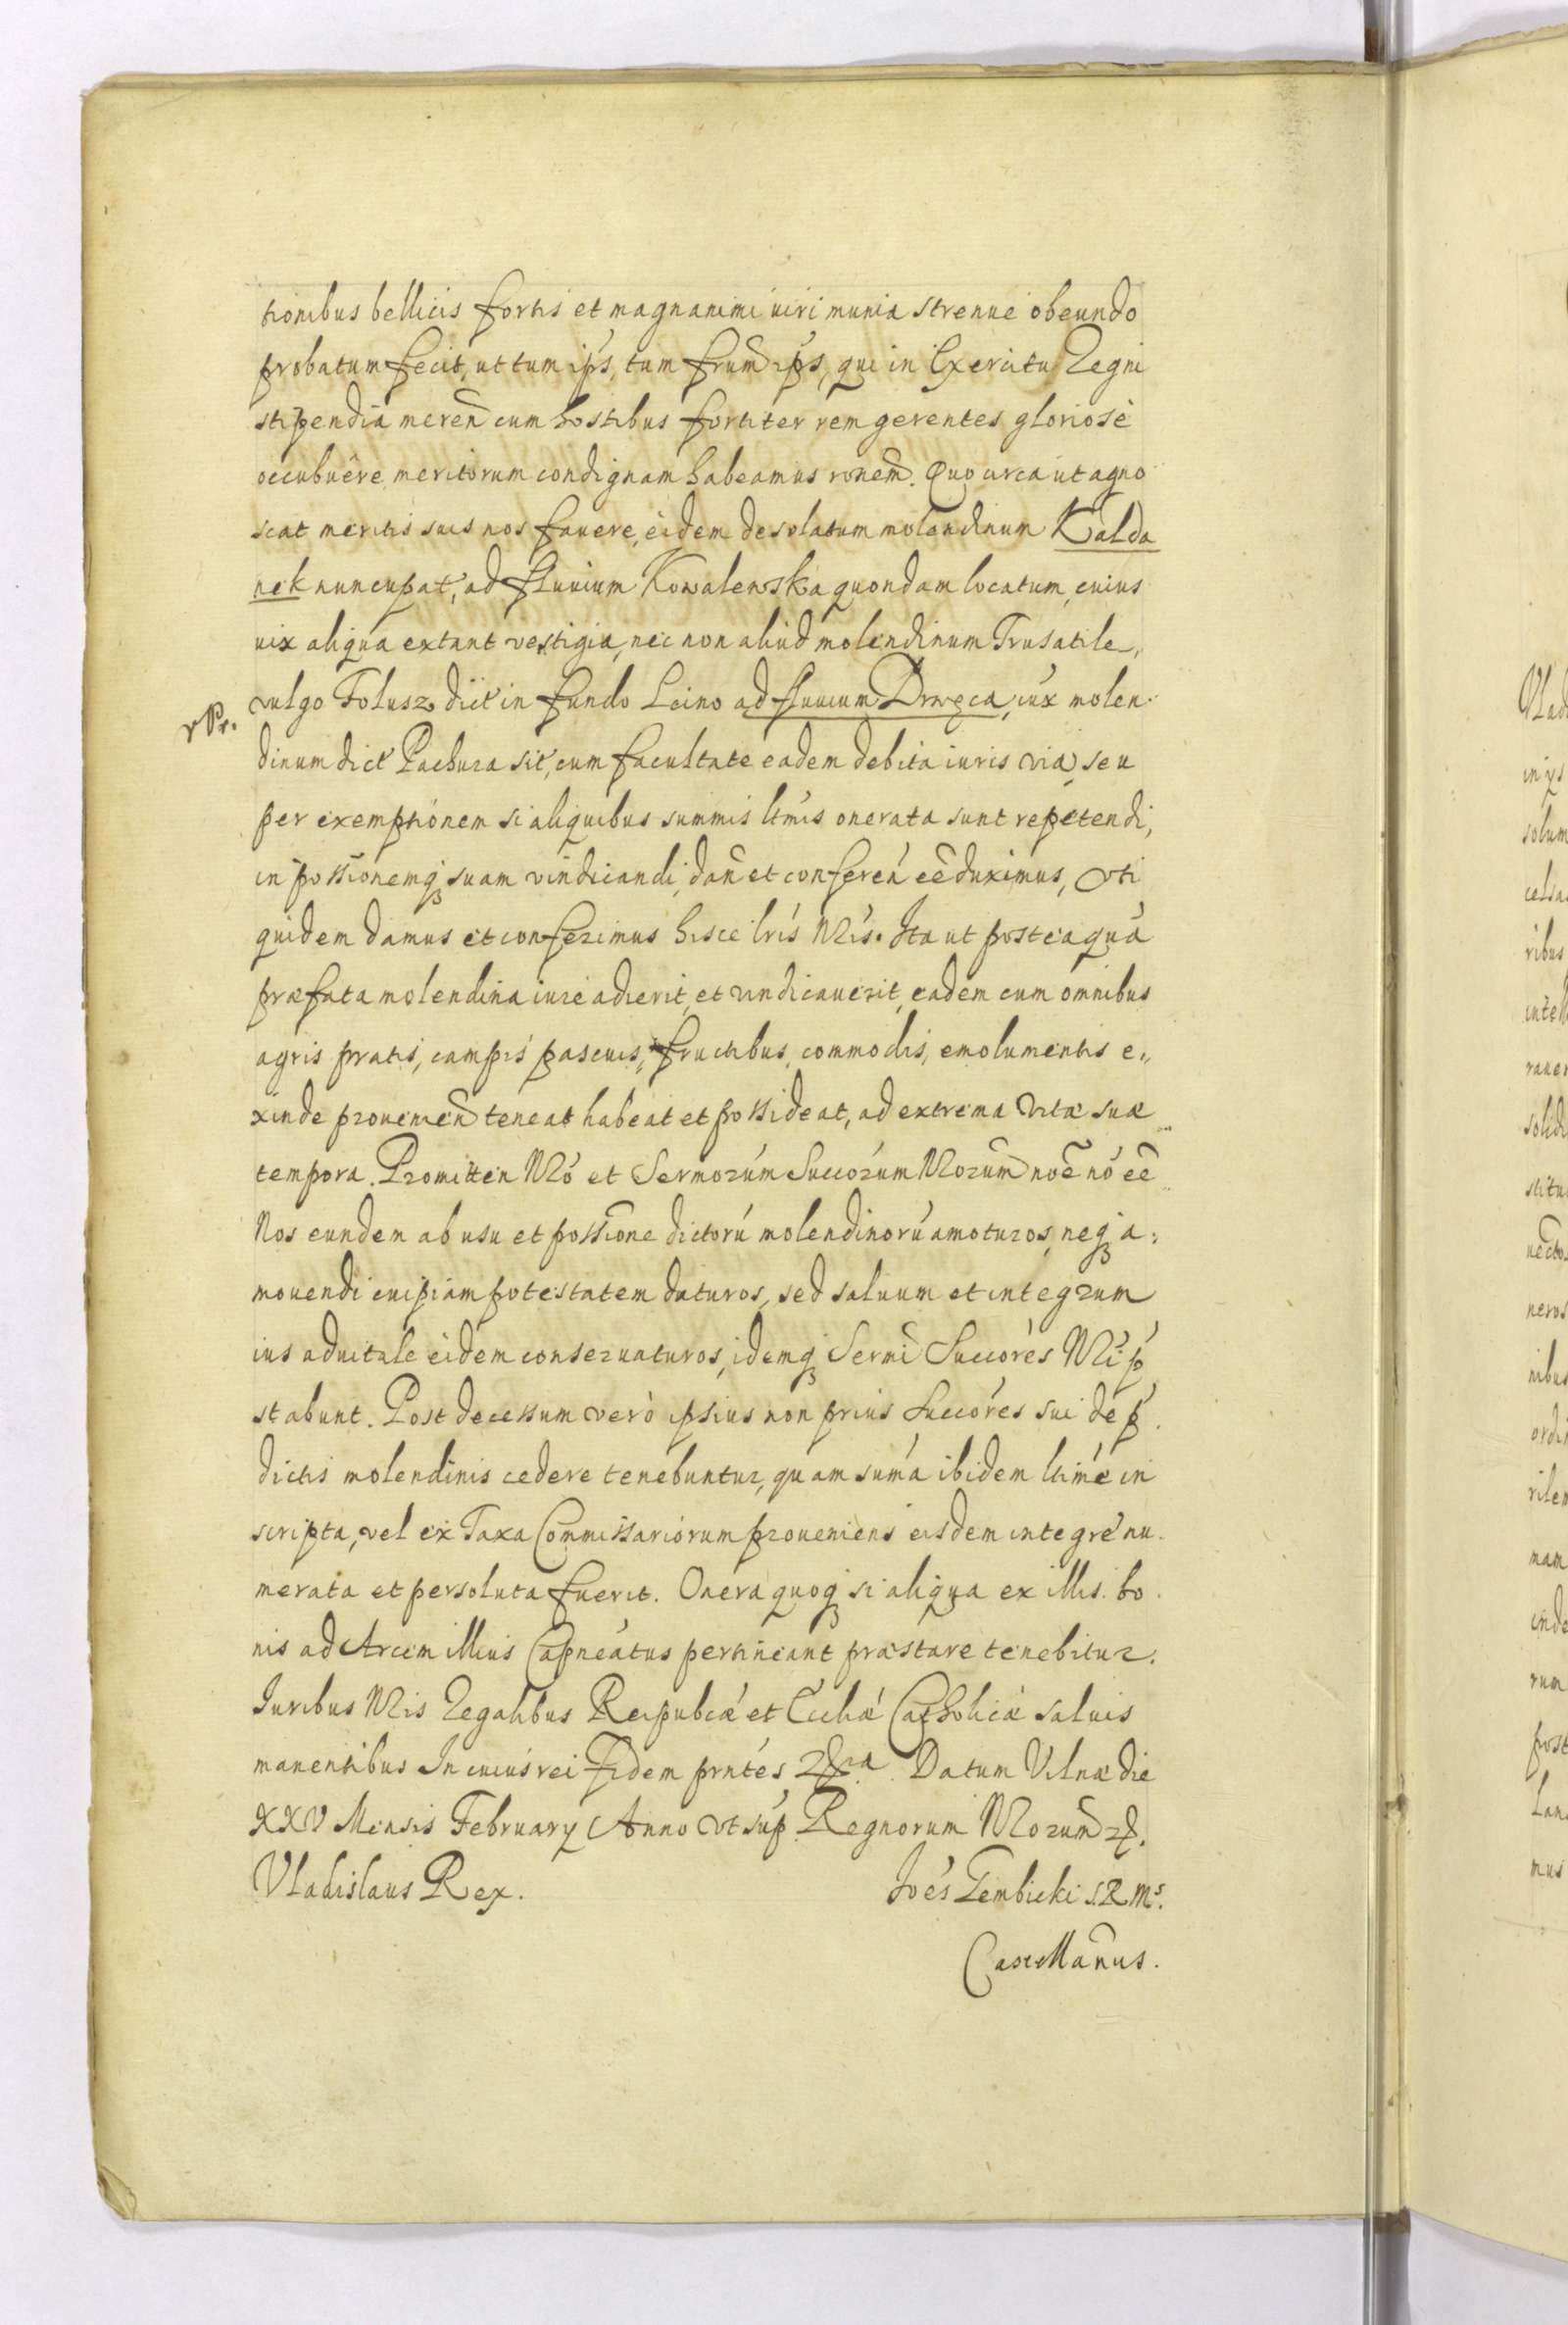 tionibus bellicis fortis et magnanimi uiri munia strenue obeundo
probatum fecit, ut tum ips, tum frum ips, qui in Exercitu Regni
stipendia meren cum hostibus fortiter rem gerentes gloriosè
occubuêre meritorum condignam habeamus ronem. Quo circa ut agno
scat meritis suis nos fauere, eidem desolatum molendinum Kalda
nek nuncupat, ad fluuium Kowalewska quondam locatum, cuius
uix aliqua extant vestigia, nec non aliud molendinum Trusatile,
vulgo Folusz dict in fundo Leino ad fluuium Drwęca, iux molen
dinum dict Pachura sit, cum facultate eadem debita iuris via, seu
per exemptionem si aliquibus summis ltmis onerata sunt repetendi,
in possionemq suam vindicandi, dan et conferen ee duximus, Uti
quidem damus et conferimus hisce lris Nris. Ita ut posteaquá
præfata molendina iure adierit, et vindicauerit, eadem cum omnibus
agris pratis, campis pascuis, fructibus, commodis, emolumentis e,,
xinde prouenien teneat habeat et possideat, ad extrema vitæ suæ
tempora. Promitten Nro et Sermorúm Succorúm Nrorum noe nó ee
Nos eundem ab usu et possione dictorú molendinorú amoturos, neq a:
mouendi cuipiam potestatem daturos, sed saluum et integrum
ius aduitale eidem conseruaturos, idemq Sermi Succóres Nri p
stabunt. Post decessum verò ipsius non prius Succóres sui de p
dictis molendinis cedere tenebuntur, quam sumá ibidem ltimé in
scripta, vel ex Taxa Commissariorum proueniens eisdem integrè nu
merata et persoluta fuerit. Onera quoq si aliqua ex illis bo
nis ad Arcem illius Capneátus pertineant præstare tenebitur.
Iuribus Nris Regalibus Reipubcæ et Eccliæ Catholicæ saluis
manentibus In cuius rei fidem prntés Datum Vilnæ die
XXV Mensis February Anno Vt sup Regnorum Nrorum
Vladislaus Rex. Ioés Gembicki S. R. Ms.
Castellanus.